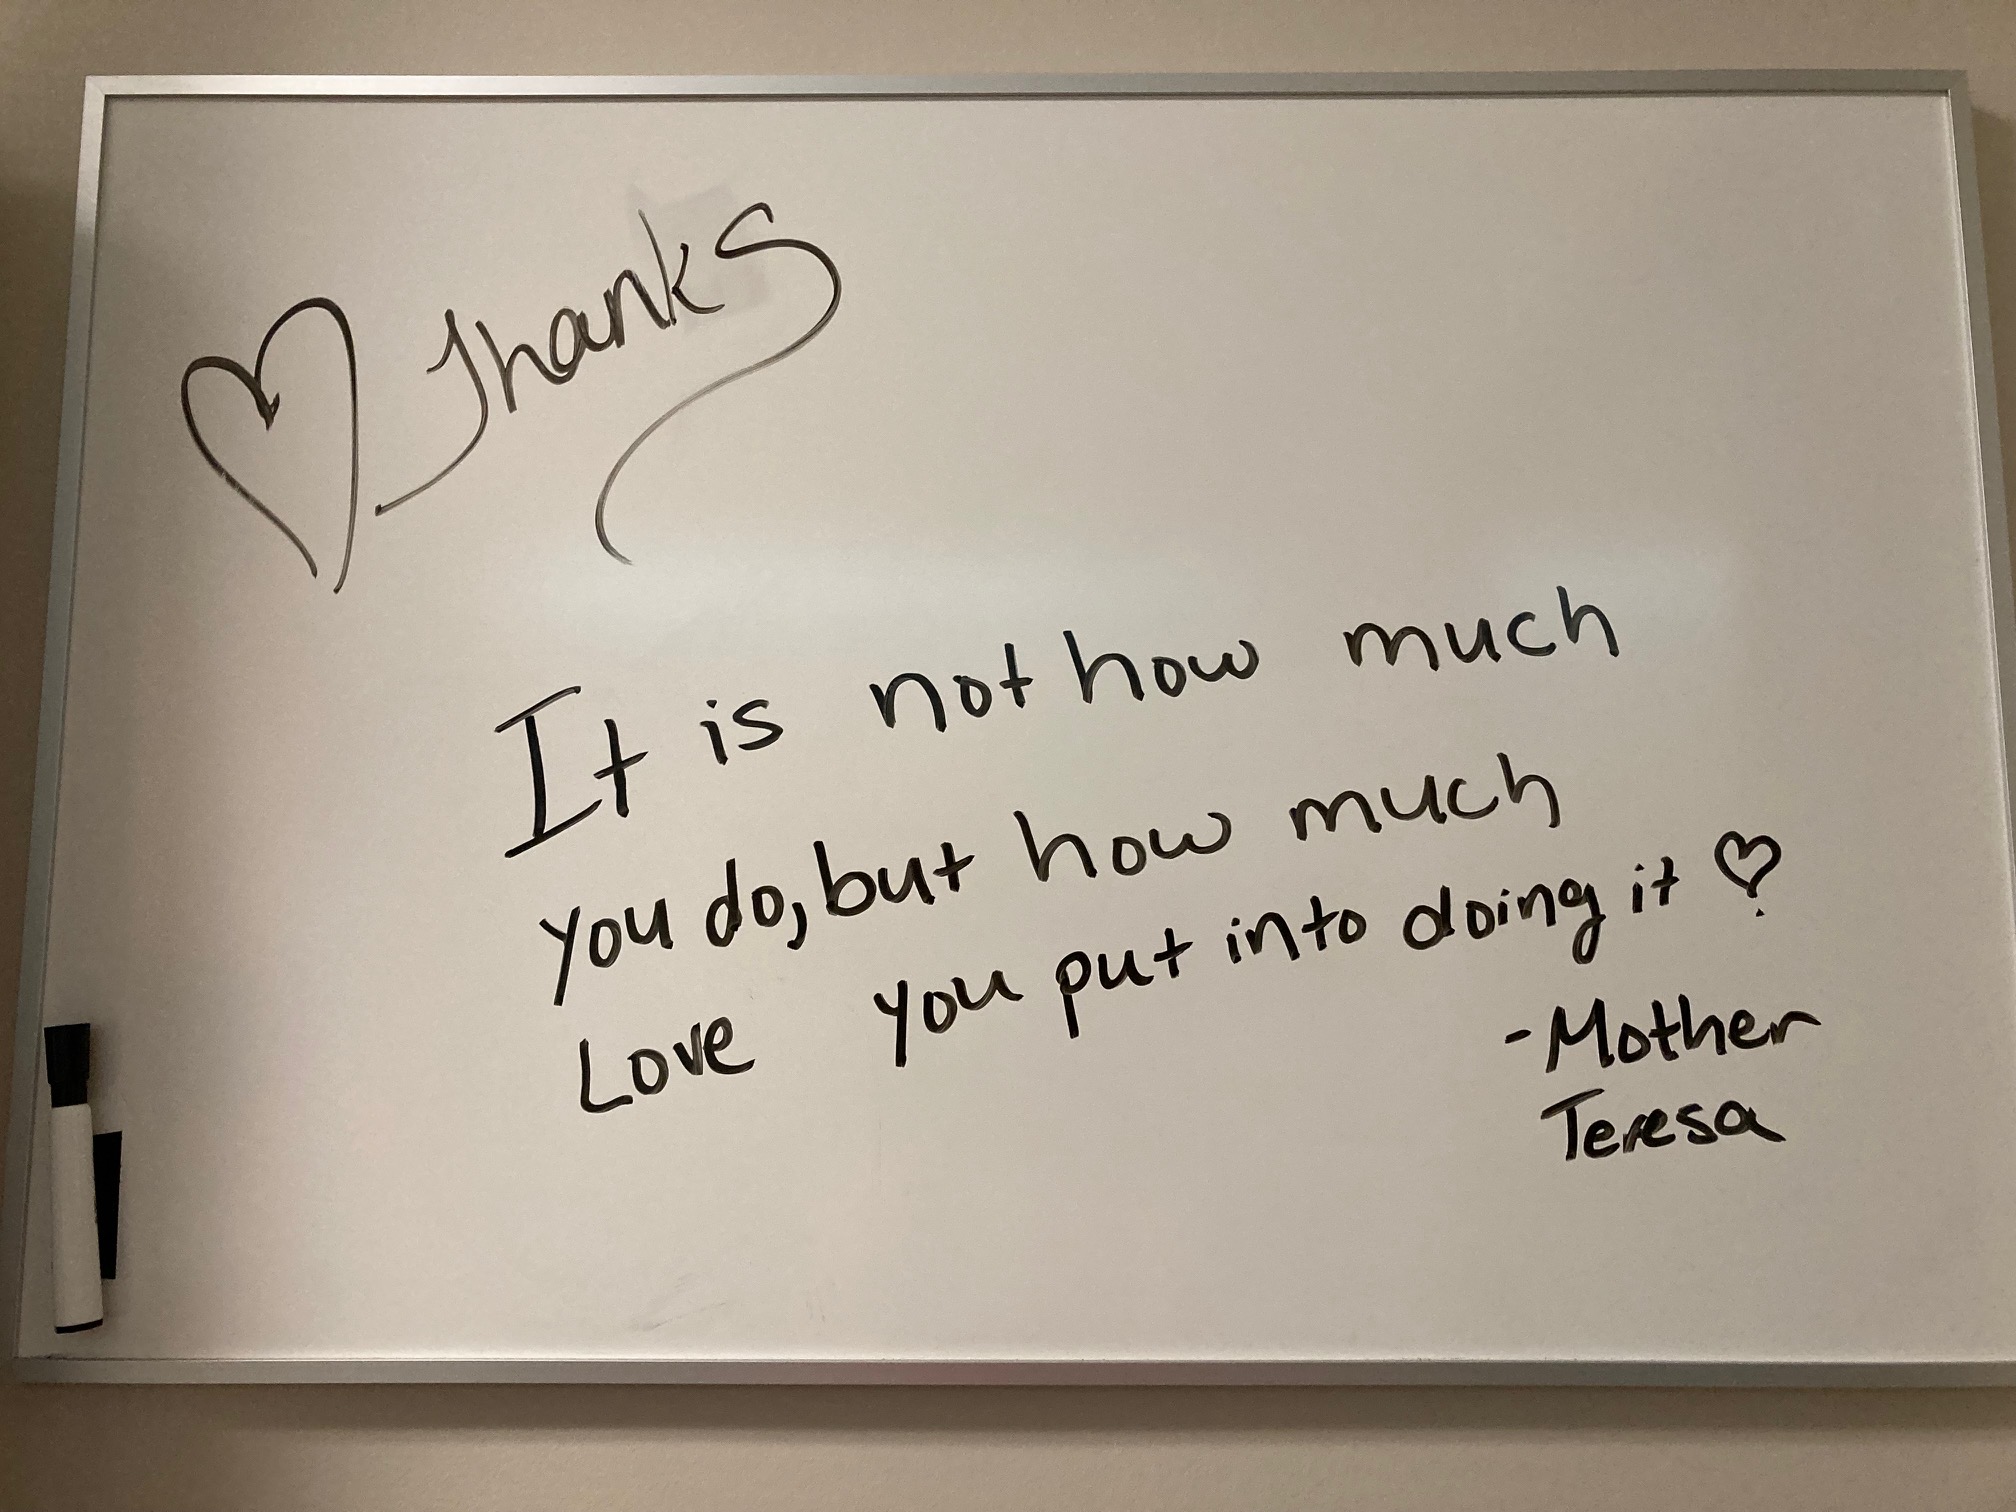 Thanks
It is not how much
you do, but how much
Love you put into doing it
- Mother
Teresa